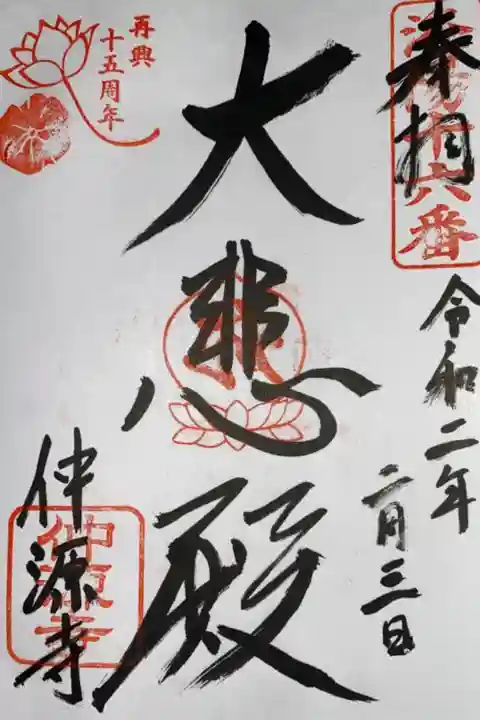 奉拝
洛陽十六番
令和二年
二月三日
大悲殿
再興
十五周年
仲源寺
仲源寺